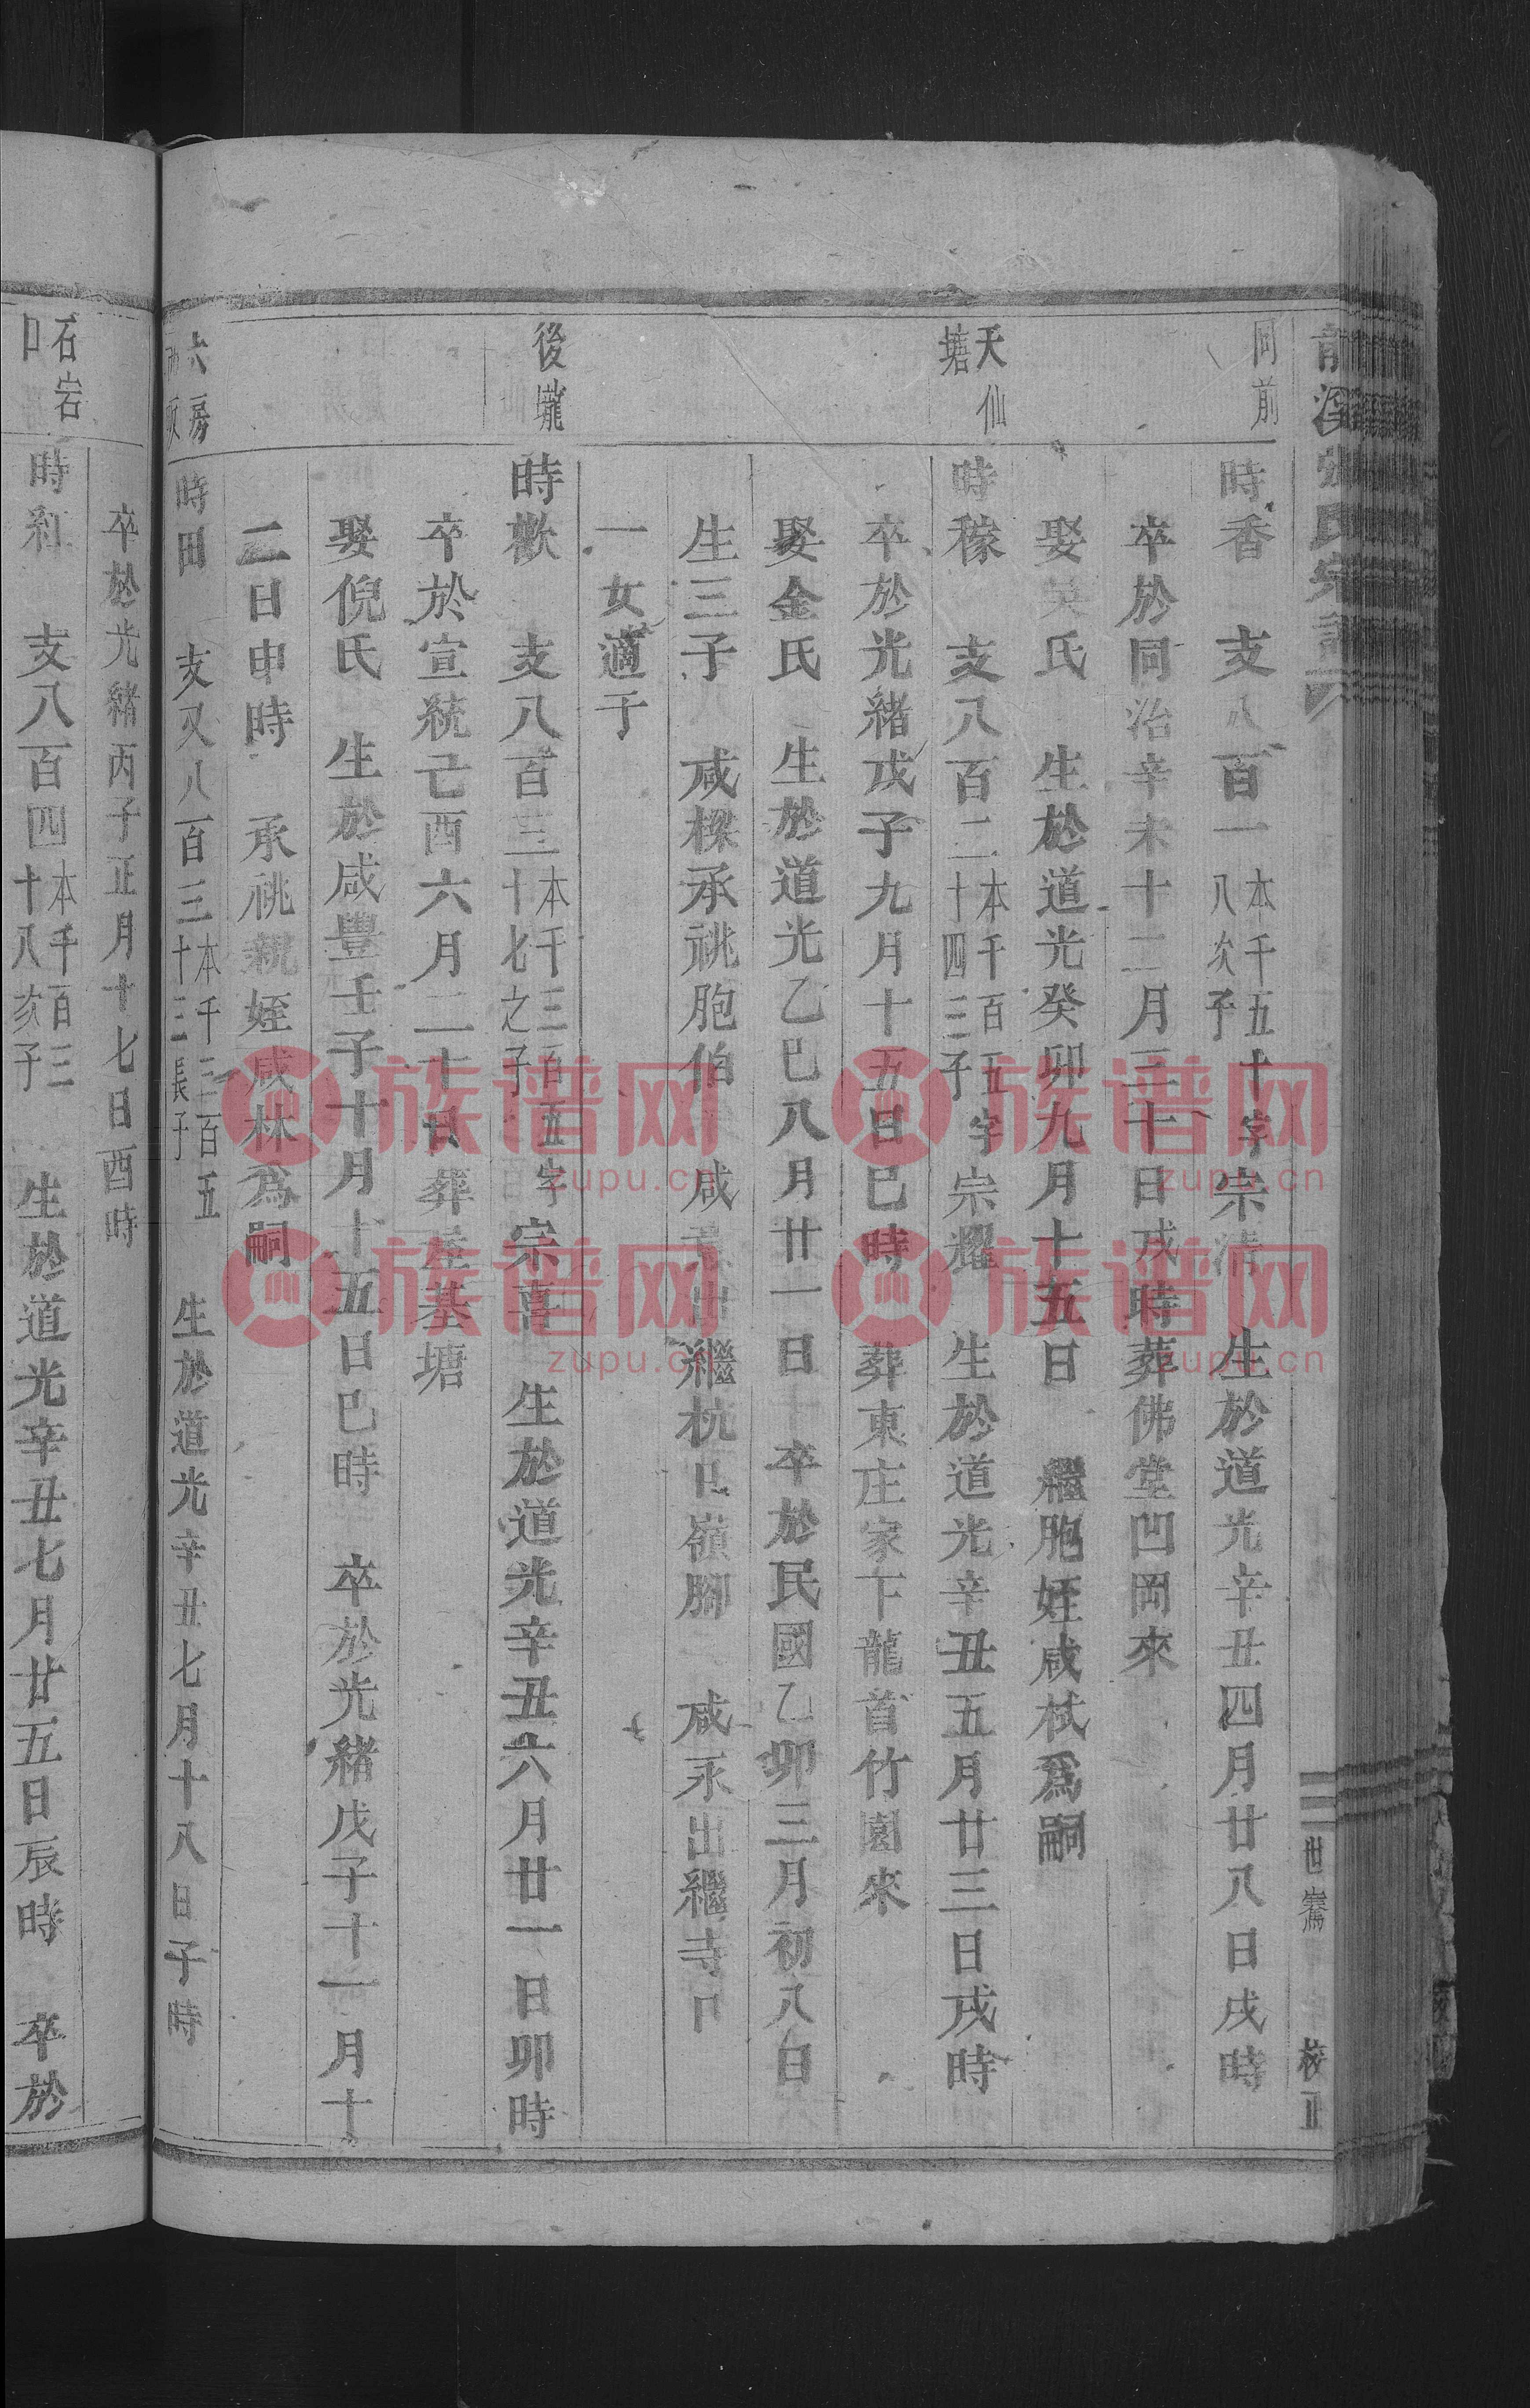 氏宗譜
世
校正
同前
時香 支八百一 本千五十字 八次子 宗清 生於道光辛丑四月廿八日戌時
卒於同治辛未十二月三十日戌時葬佛堂凹岡來
娶吳氏 生於道光癸卯九月十五日 繼胞姪咸栻爲嗣
天仙塘
時稼 支八百二十四 本千百五字 三子 宗耀 生於道光辛丑五月廿三日戌時
卒於光緒戊子九月十五日巳時 葬東庄家下龍首竹園來
娶金氏 生於道光乙巳八月廿一日 卒於民國乙卯三月初八日
生三子 咸樑承祧胞伯 咸 出繼杭口嶺腳 咸永出繼寺口
一女適于
後壠
時歡 支八百三十七之子 本千三百五字 宗喜 生於道光辛丑六月廿一日卯時
卒於宣統己酉六月二十日葬屋基塘
娶倪氏 生於咸豐壬子十月十五日巳時 卒於光緒戊子十一月十
二日申時 承祧親姪咸林爲嗣
六房
時田 支又八百三十三長子 本千三百五 生於道光辛丑七月十八日子時
卒於光緒丙子正月十七日酉時
石岩口
時和 支八百四十八次子 本千百三 生於道光辛丑七月廿五日辰時 卒於
族谱网
zupu.cn
族谱网
zupu.cn
族谱网
zupu.cn
族谱网
zupu.cn